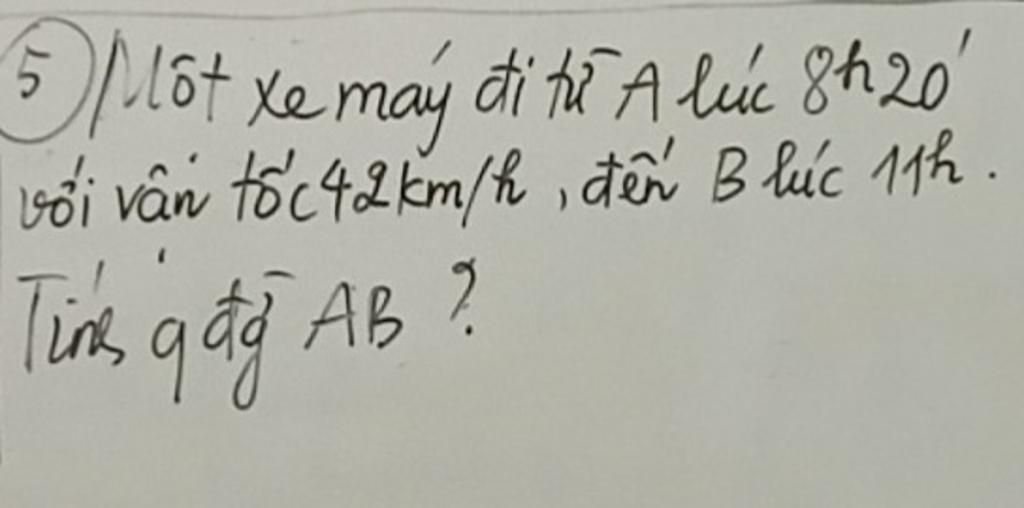 5) Một xe máy đi từ A lúc 8h20'
với vận tốc 42km/h, đến B lúc 11h.
Tính qđg AB?